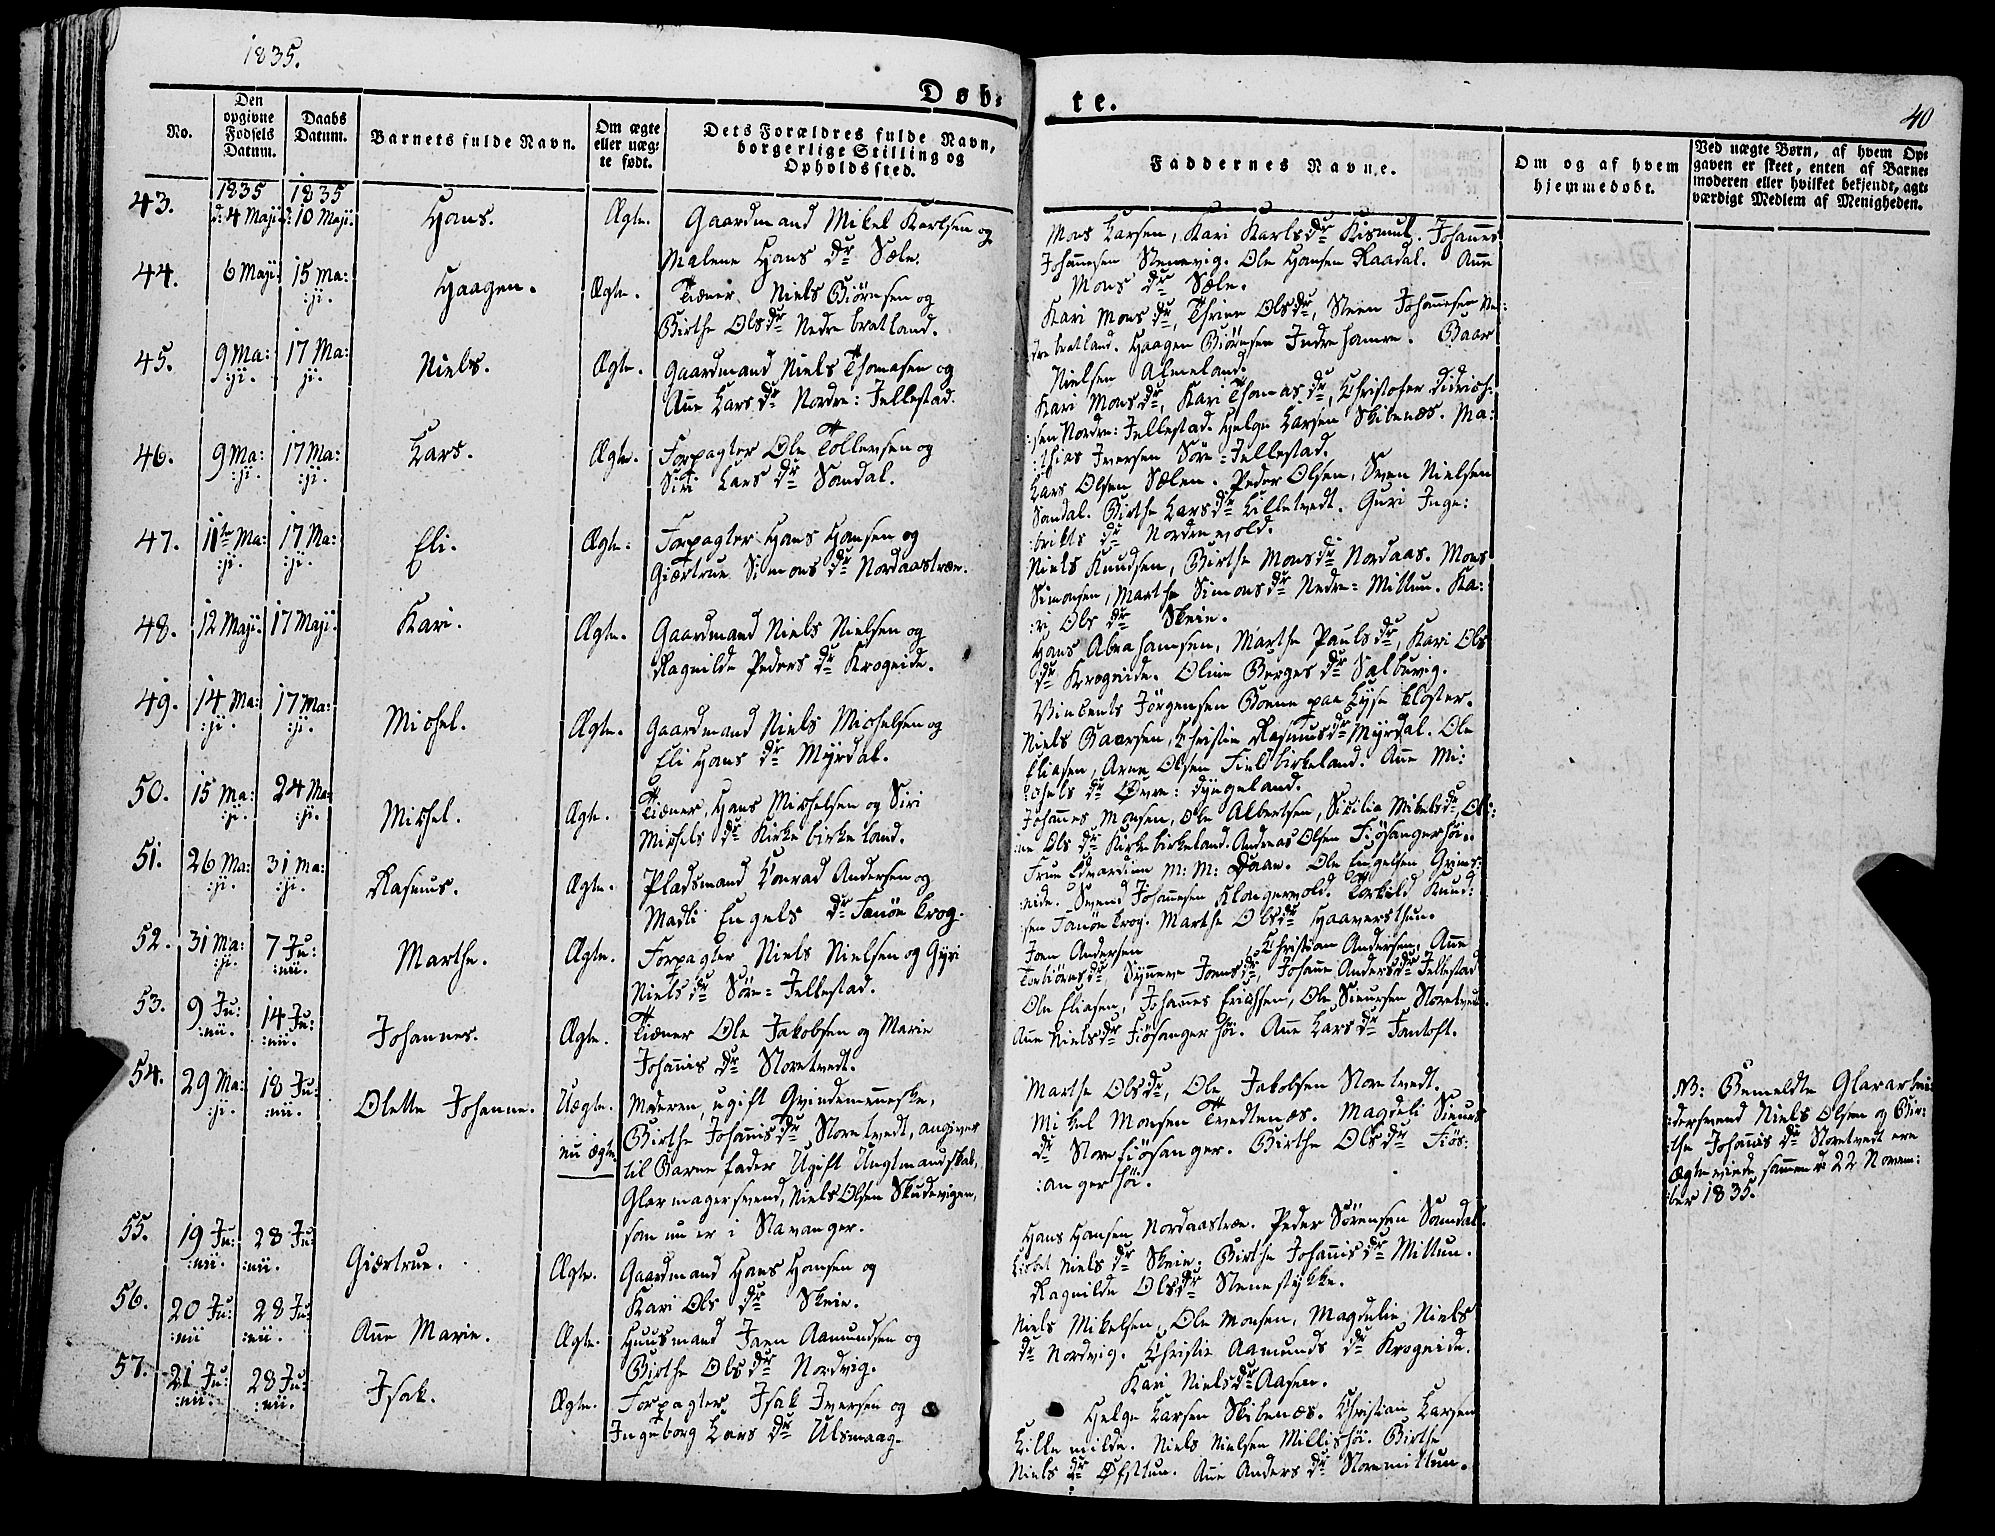 1835.
Døb-
te.
40
No.
Den opgivne Fødsels Datum.
Daabs Datum.
Barnets fulde Navn.
Om ægte eller uægte født.
Dets Forældres fulde Navn, borgerlige Stilling og Opholdssted.
Faddernes Navne.
Om og af hvem hjemmedøbt.
Ved uægte Børn, af hvem Opgaven er skeet, enten af Barnemoderen eller hvilket bekjendt, agtværdigt Medlem af Menigheden.
43.
1835 d: 4 Maji.
1835 d: 10 Maji.
Hans.
Ægte.
Gaardmand Mikel Karlsen og
Malene Hans dr Sæle.
Mons Larsen, Kari Karlsdr Kismul. Johannes
Johannesen Stenevig. Ole Hansen Raadal. Anne
Mons dr Sæle.
44.
6 Maji.
15 Ma:
:ji.
Haagen.
Ægte.
Tiener Niels Biörnsen og
Birthe Olsdr Nedre bratland.
Kari Monsdr, Thrine Olsdr, Steen Johannesen Ne:
dre bratland. Haagen Biörnsen Indre hamre. Baar
Nielsen Almeland.
45.
9 Ma:
:ji.
17 Ma:
ji.
Niels.
Ægte.
Gaardmand Niels Thomasen og
Anne Lars dr Nordre: Jellestad.
Kari Monsdr, Kari Thomasdr, Christofer Didrich:
:sen Nordre: Jellestad. Helge Larsen Skibenæs. Ma:
:thias Iversen Söre: Jellestad.
46.
9 Ma:
:ji.
17 Ma:
:ji.
Lars.
Ægte.
Forpagter Ole Tollevsen og
Siri Lars dr Sandal.
Lars Olsen Sælen. Peder Olsen, Sven Nielsen
Sandal. Birthe Larsdr Lilletvedt. Guri Inge:
:brikts dr Nordrevold.
47.
11te Ma:
:ji.
17 Ma:
:ji.
Eli.
Ægte:
Forpagter Hans Hansen og
Giærtrue Simons dr Nordaastræe.
Niels Knudsen, Birthe Monsdr Nordaas. Mons
Simonsen, Marthe Simonsdr Nedre= Mittun. Ka:
:ri Ols dr Skeie.
48.
12 Maji.
17 Maji.
Kari.
Ægte.
Gaardmand Niels Nielsen og
Ragnilde Peders dr Krogeide.
Hans Abrahamsen, Marthe Paulsdr, Kari Ols
dr Krogeide. Oline Borges dr Salbuvig.
Vinbents Jörgensen Boene paa Lyse kloster.
49.
14 Ma:
:ji.
17 Ma:
:ji.
Michel.
Ægte.
Gaardmand Niels Michelsen og
Eli Hans dr Myrdal.
Niels Baarsen, Christie Rasmusdr Myrdal. Ole
Eliasen, Arne Olsen Fieldbirkeland. Anne Mi:
:chels dr Övre: dyngeland.
50.
15 Ma:
:ji.
24 Ma:
:ji.
Michel.
Ægte.
Tiener, Hans Michelsen og Siri
Michels dr Kirke birkeland.
Johannes Monsen, Ole Albertsen, Sicilia Mikelsdr, Oli:
:ne Ols dr Kirke birkeland. Andreas Olsen Fiösangerhöi.
51.
26 Ma:
:ji.
31 Ma:
:ji.
Rasmus.
Ægte.
Pladsmand Konrad Andersen og
Madli Engels dr Fanöe krog.
Frue Edvardine M: M: Daae. Ole Engelsen Grims:
:eide. Svend Johannesen Klongervold. Torkild Knud:
:sen Fanöe krog. Marthe Olsdr Haaversthun.
52.
31 Ma:
:ji.
7 Ju:
:nii.
Marthe.
Ægte.
Forpagter Niels Nielsen og Gyri
Niels dr Söre= Jellestad.
Joen Andersen, Christian Andersen, Anne
Torbiörnsdr, Synneve Joensdr, Johanne Andersdr Jellestad
53.
9 Ju:
:nii.
14 Ju:
:nii.
Johannes.
Ægte.
Tiener Ole Jakobsen og Marie
Johannis dr Storetvedt.
Ole Eliasen, Johannes Erichsen, Ole Sieursen Storetvedt.
Anne Nielsdr Fiösanger höi. Anne Lars dr Fantoft.
54.
29 Ma:
:ji.
18 Ju:
:nii.
Olette Johanne.
Uægte.
nu ægte
Moderen, ugift Qvindemenneske,
Birthe Johannisdr Storetvedt, angiver
til Barnefader Ugift Ungtmandskal,
Glarmagersvend, Niels Olsen Skudevigen,
som nu er i Stavanger.
Marthe Olsdr, Ole Jakobsen Storetvedt.
Mikel Monsen Tvedtenæs. Magdeli Sieurs
dr Store fiösanger. Birthe Olsdr Fiös:
:anger höi.
NB: Bemeldte Glararbei:
:dersvend Niels Olsen og Bir:
:the Johannis dr Storetvedt ere
Ægteviede sammen d 22 Novem:
:ber 1835.
55.
19 Ju:
:nii.
28 Ju:
:nii.
Giærtrue.
Ægte.
Gaardmand Hans Hansen og
Kari Ols dr Skeie.
Hans Hansen Nordaastræe. Peder Sörensen Sandal.
Lisbet Niels dr Skeie. Birthe Johannis dr Mittun.
Ragnilde Olsdr Stenestykke.
56.
20 Ju:
:nii
28 Ju:
:nii.
Anne Marie.
Ægte.
Huusmand Joen Aamundsen og
Birthe Ols dr Nordvig.
Niels Mikelsen, Ole Monsen, Magdelie Niels
dr Nordvig. Christie Aamunds dr Krogeide.
Kari Nielsdr Aasen.
57.
21 Ju:
:nii.
28 Ju:
:nii.
Isak.
Ægte.
Forpagter Isak Iversen og
Ingeborg Lars dr Ulsmaag.
Helge Larsen Skibenæs. Christian Larsen
Lille milde. Niels Nielsen Millishöi. Birthe
Niels dr Öfsttun. Anne Anders dr Storemittun.